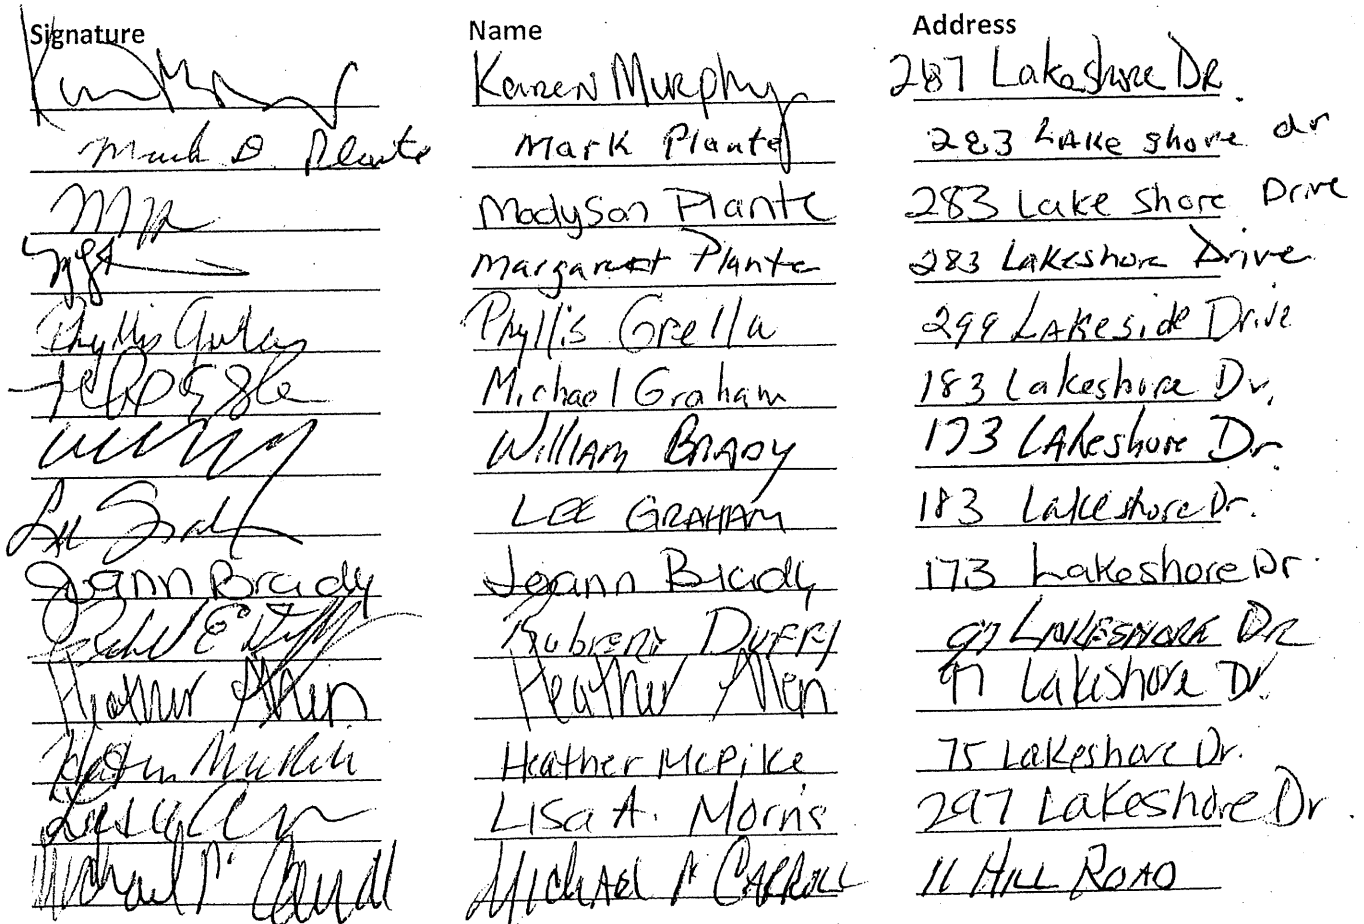 Signature Name Address
Karen Murphy 287 Lakeshore DR.
Mark D. Plante Mark Plante 283 LAKe shore dr
Madyson Plante 283 Lake Shore Drive
Margaret Plante 283 Lakeshore Drive
Phyllis Grella Phyllis Grella 299 LAKeside Drive
Michael Graham 183 Lakeshore Dr.
William BRADY 173 LAkeshore Dr.
Lee LEE GRAHAM 183 Lakeshore Dr.
Joann Brady Joann Brady 173 Lakeshore Dr.
DUFFY 97 LAKESHORE DR
Heather Allen Heather Allen 97 Lakeshore Dr.
Heather McPike Heather McPike 75 Lakeshore Dr.
Lisa A. Morris 297 Lakeshore Dr.
Michael P. Carroll MICHAEL P CARROLL 11 HILL ROAD